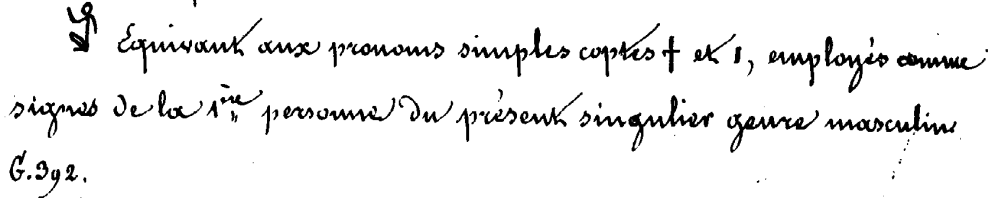 Équivant aux pronoms simples coptes ϯ et ⲓ, employés comme
signes de la 1ère personne du présent singulier genre masculin
G. 392.